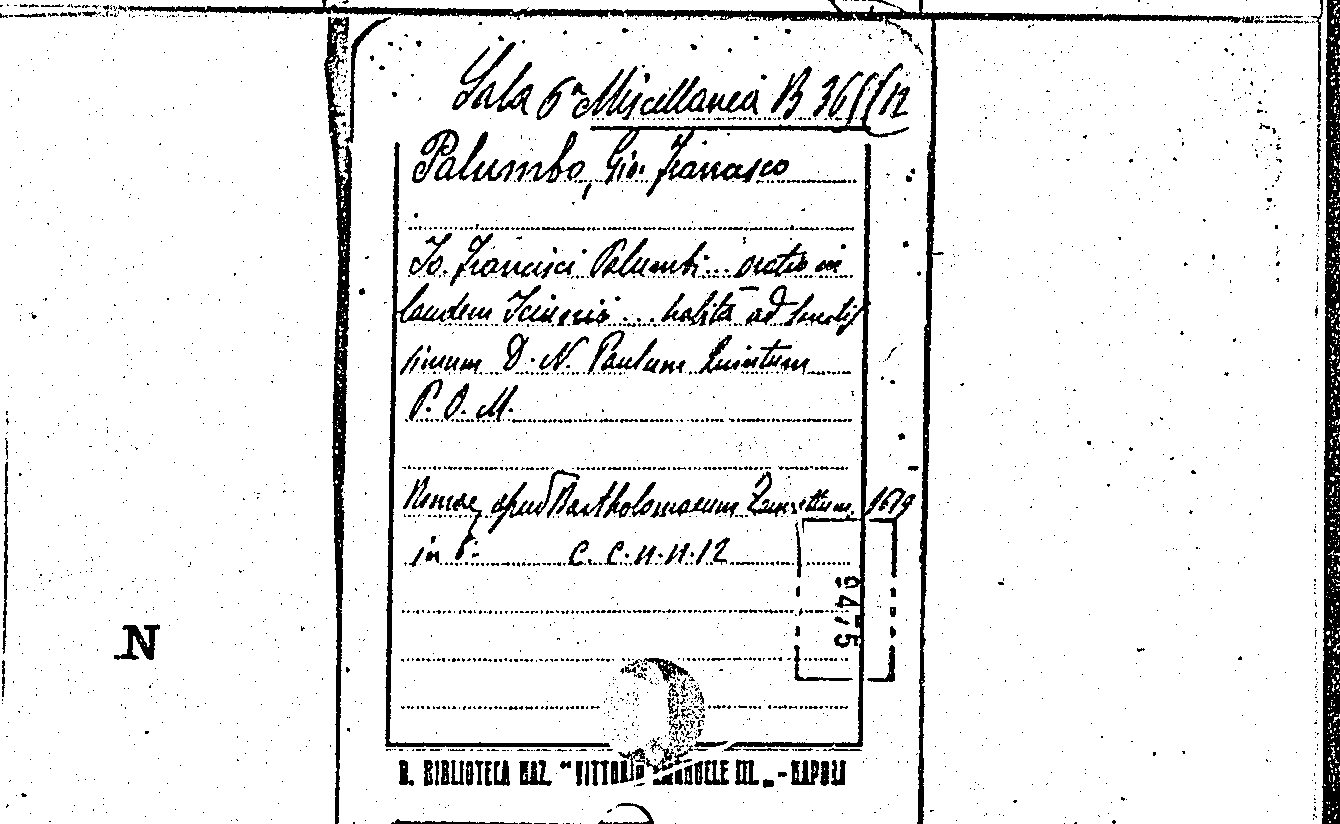 Sala 6ª Miscellanea B 36
Palumbo, Gio. Francesco
Io. Francisci Palumbi... oratio in
laudem ... habita ad Sanctis
simum D. N. Paulum Quintum
P. O. M.
Romae, apud Bartholomaeum Zannettum. 1619
in 8.° c. c. n. n. 12
9475
N
R. BIBLIOTECA NAZ. "VITTORIO EMANUELE III" - NAPOLI